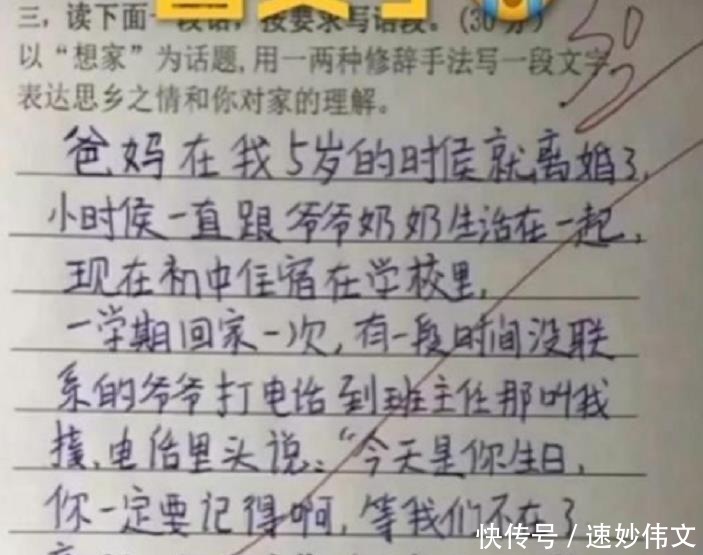 三，读下面一段话，按要求写话段。(30分)
以“想家”为话题,用一两种修辞手法写一段文字
表达思乡之情和你对家的理解。
30
爸妈在我5岁的时候就离婚了,
小时侯一直跟爷爷奶奶生活在一起,
现在初中住宿在学校里,
一学期回家一次,有一段时间没联
系的爷爷打电话到班主任那叫我
接,电话里头说:“今天是你生日,
你一定要记得啊,等我们不在了
快传号/速妙伟文